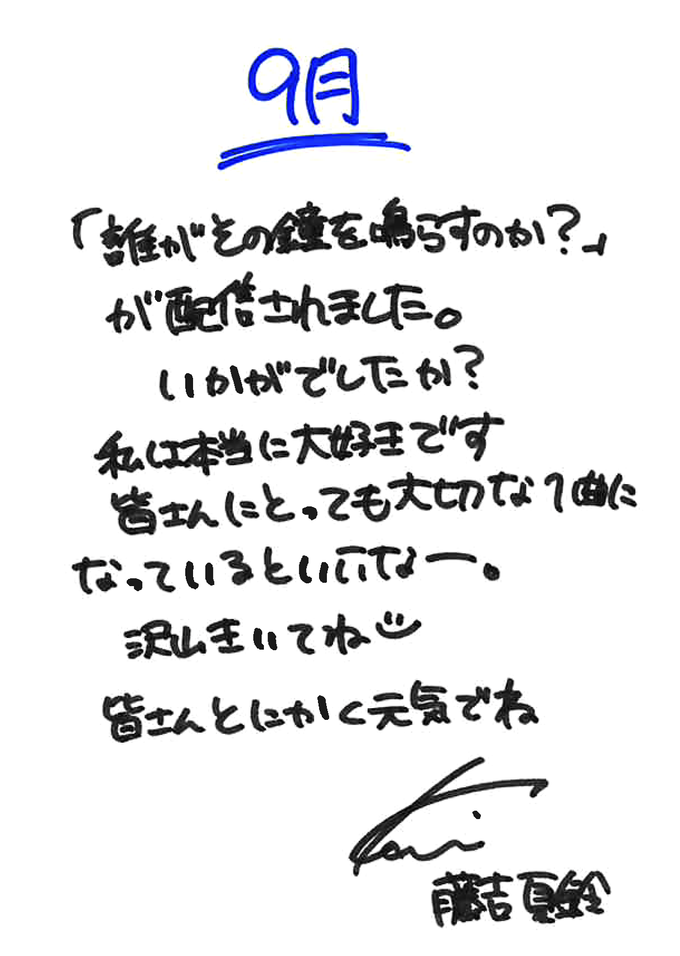 9月
「誰がその鐘を鳴らすのか?」
が配信されました。
いかがでしたか?
私は本当に大好きです
皆さんにとっても大切な1曲に
なっているといいなー。
沢山きいてね
皆さんとにかく元気でね
藤吉夏鈴